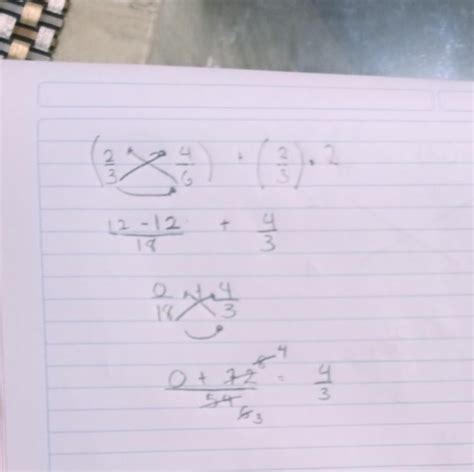 (2/3 - 4/6) + (2/3) · 2
12 - 12/18 + 4/3
0/18 + 4/3
0 + 72/54 = 4/3
8 4
6 3